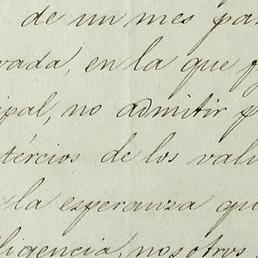 de un mes par
vada, en la que f
ipal, no admitir p
tércios de los valo
la esperanza qu
ligencia, nosotros